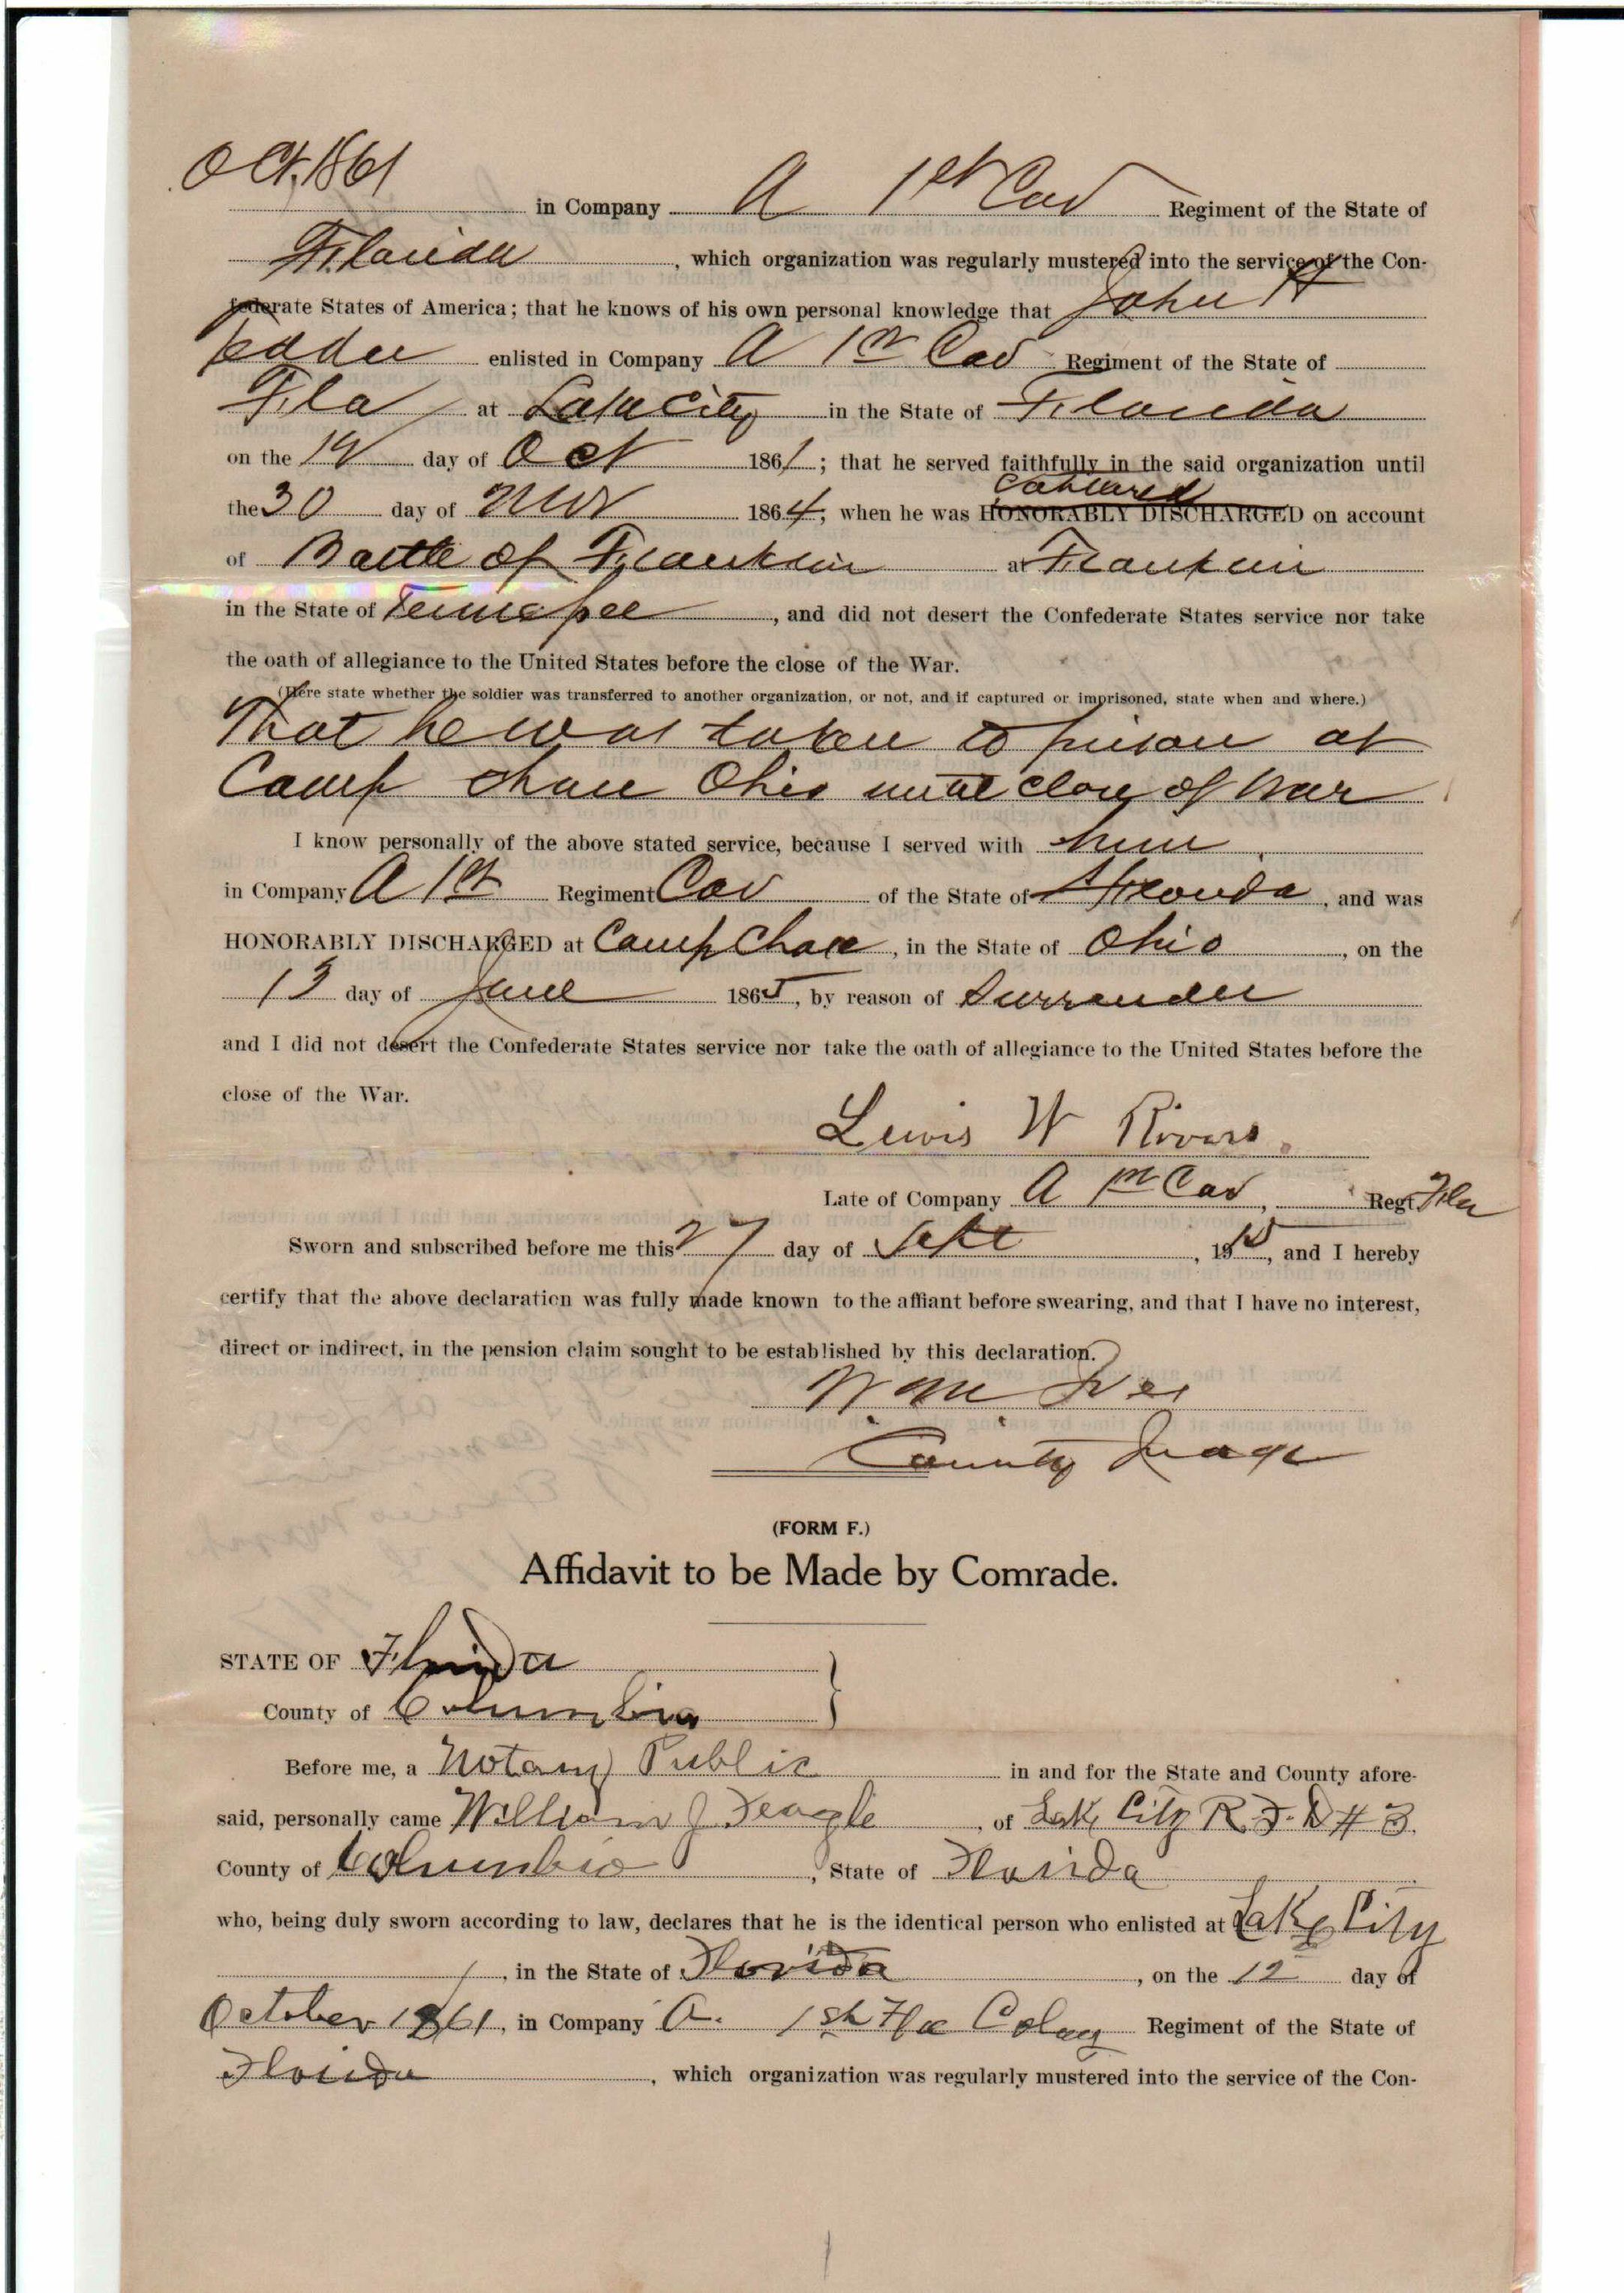 Oct. 1861 in Company A 1st Cav Regiment of the State of
Florida, which organization was regularly mustered into the service of the Con-
federate States of America; that he knows of his own personal knowledge that John
enlisted in Company A 1st Cav Regiment of the State of
Fla at Lake City in the State of Florida
on the day of Oct 1861; that he served faithfully in the said organization until
captured
the 30 day of Nov 1864, when he was HONORABLY DISCHARGED on account
of Battle of Franklin at Franklin
in the State of Tennessee, and did not desert the Confederate States service nor take
the oath of allegiance to the United States before the close of the War.
(Here state whether the soldier was transferred to another organization, or not, and if captured or imprisoned, state when and where.)
That he was taken to prison at
Camp Chase Ohio until close of war
I know personally of the above stated service, because I served with him
in Company A 1st Regiment Cav of the State of Florida, and was
HONORABLY DISCHARGED at Camp Chase, in the State of Ohio, on the
13 day of June 1865, by reason of Surrender
and I did not desert the Confederate States service nor take the oath of allegiance to the United States before the
close of the War.
Lewis W Rivers.
Late of Company A 1st Cav, Regt Fla
Sworn and subscribed before me this 27 day of Sept, 19, and I hereby
certify that the above declaration was fully made known to the affiant before swearing, and that I have no interest,
direct or indirect, in the pension claim sought to be established by this declaration.
W. M. Ives
County Judge
(FORM F.)
Affidavit to be Made by Comrade.
STATE OF Florida
County of Columbia
Before me, a Notary Public in and for the State and County afore-
said, personally came William J Feagle, of Lake City R. F. D # 3.
County of Columbia, State of Florida
who, being duly sworn according to law, declares that he is the identical person who enlisted at Lake City
, in the State of Florida, on the 12 day of
October 1861, in Company A. 1st Fla Calvy Regiment of the State of
Florida, which organization was regularly mustered into the service of the Con-